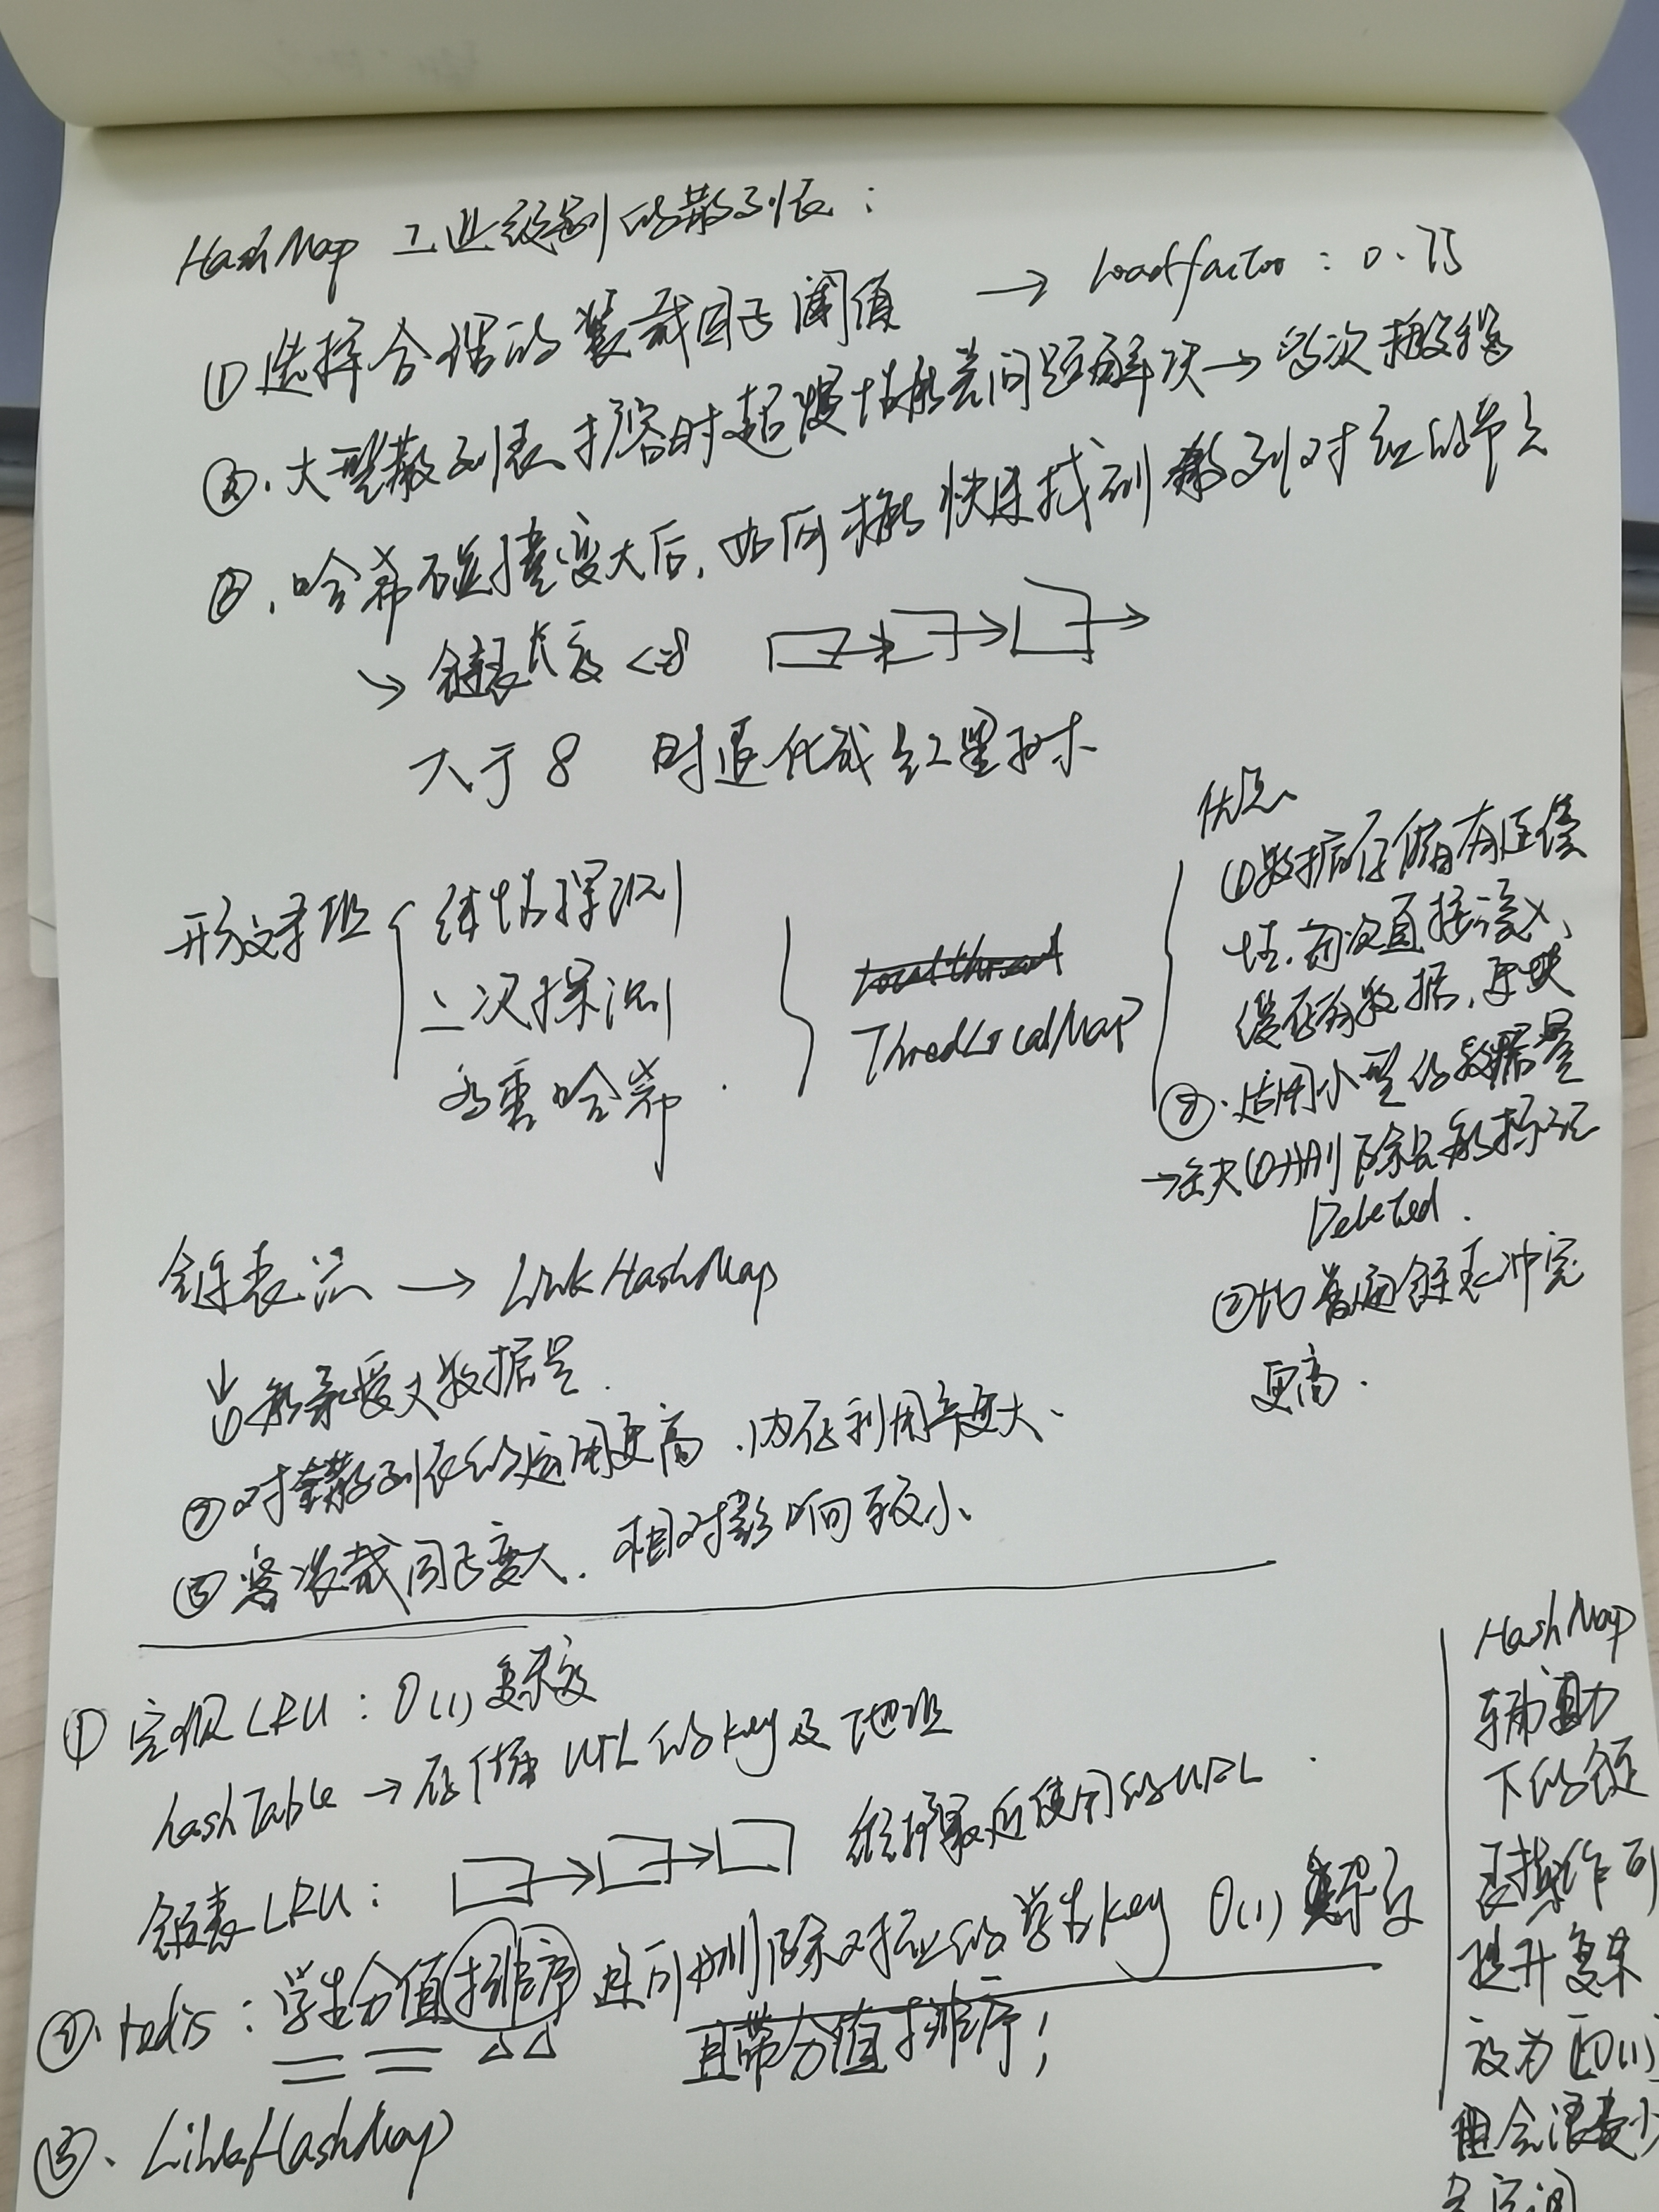 HashMap 工业级别的散列表：
①选择合理的装载因子阈值 → loadfactor : 0.75
②、大型散列表扩容时超慢性能差问题解决→每次搬移
③、哈希碰撞变大后，如何能快速找到散列对应的节点
↘ 链表长度 <=8
大于 8 时退化成红黑树
开放寻址
线性探测
二次探测
多重哈希.
ThredLocalMap
优点
①数据存储有连续
性，每次直接读入
缓存的数据，更快
②、适用小型的数据量
→缺①删除只能标记
Deleted.
②比普通链表冲突
更高.
链表法 → LinkHashMap
↓①能承受大数据量.
②对散列表的运用更高，内存利用率更大、
③当装载因子变大，相对影响较小、
① 实现LRU：O(1)复杂度
hashTable → 存储 URL的key及地址
链表LRU：
维护最近使用的URL
②、redis：学生分值排序 还可删除对应的学生key O(1)复杂度
且带分值排序！
③、LinkHashMap
HashMap
辅助
下的链
表操作可
提升复杂
度为O(1)
但会浪费
空间